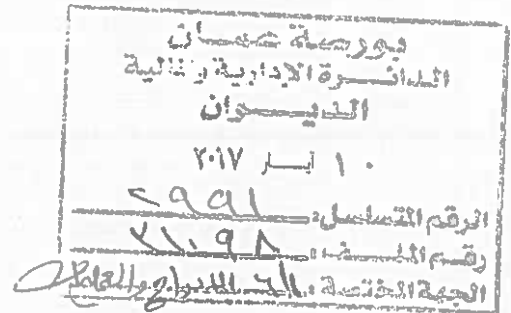 بورصة عمان
الدائرة الإدارية والمالية
الديوان
١٠ أيار ٢٠١٧
الرقم التسلسل: ٢٩٩١
رقم الملف:
الجهة المختصة: